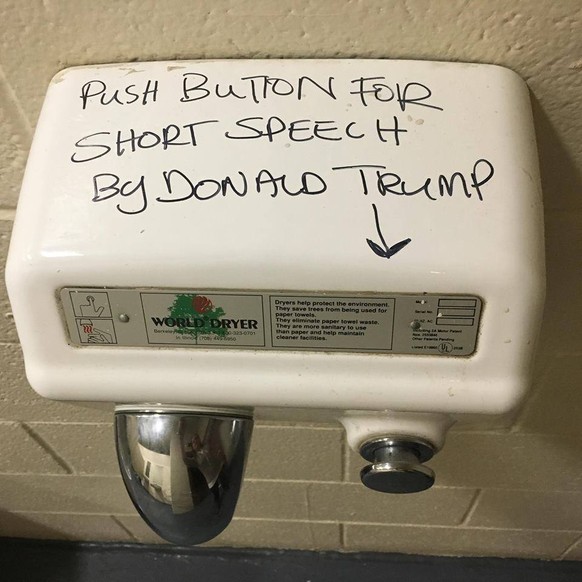 PUSH BUTTON FOR
SHORT SPEECH
BY DONALD TRUMP
WORLD DRYER
Dryers help protect the environment.
They save trees from being used for
paper towels.
They eliminate paper towel waste.
They are more sanitary to use
than paper and help maintain
cleaner facilities.
Serial No.
Other Patents Pending
UL